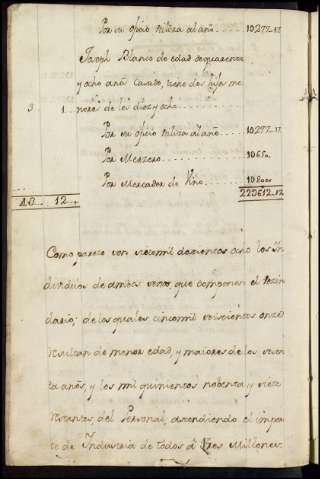 Por su oficio utiliza al año . . . 10272..17
Joseph Blanco de edad de quarenta
y ocho años Casado, tiene dos hijos me
3 1 . nores de los diez y ocho . . . . .
Por su oficio utiliza al año . . . . 10272..17
Por Mercero . . . . . . . . . 10650..
Por Mercader de Vino . . . . . 10800
12 . . 229612..12
Como parece son siete mil doscientos ocho los In
dividuos de ambos sexos, que componen el Vezin
dario, de los quales cinco mil seiscientos once
resultan de menor edad, y maiores de los sesen
ta años, y los mil quinientos nobenta y siete
restantes, del Personal, ascendiendo el impor
te de Industria de todos à tres Millones